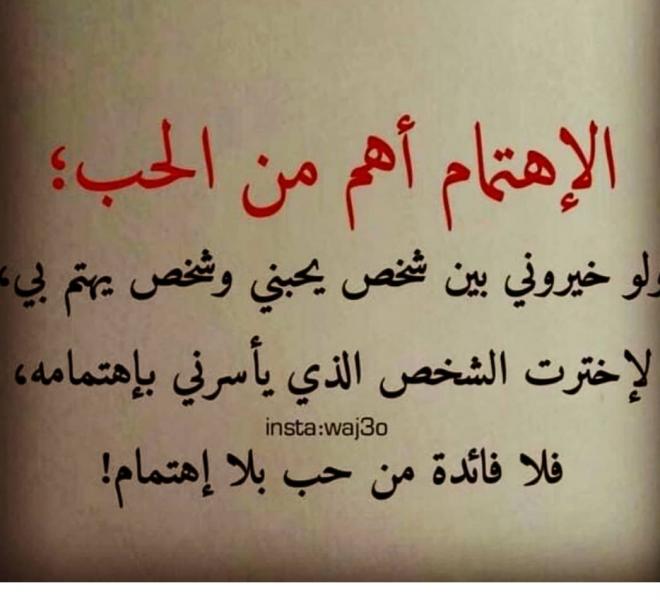 الإهتمام أهم من الحب؛
ولو خيروني بين شخص يحبني وشخص يهتم بي،
لإخترت الشخص الذي يأسرني بإهتمامه،
insta:waj3o
فلا فائدة من حب بلا إهتمام!